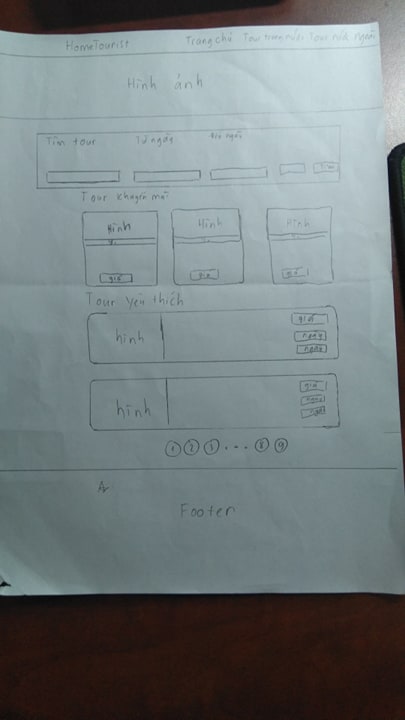 HomeTourist Trang chủ Tour trong nước Tour nước ngoài
Hình ảnh
Tìm tour Từ ngày Đến ngày
Tìm
Tour khuyến mãi
Hình Hình Hình
giá giá giá
Tour yêu thích
hình giá
ngày
ngày
hình giá
ngày
ngày
1 2 3 ... 8 9
Footer